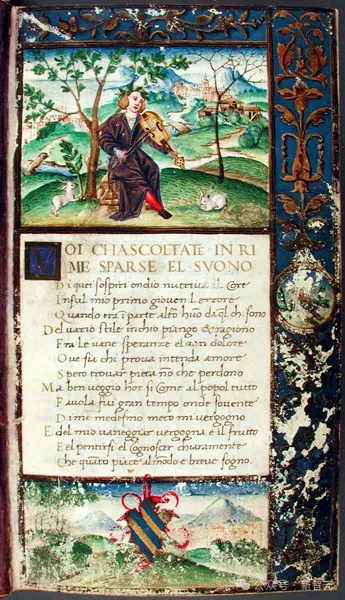 VOI CHASCOLTATE IN RI
ME SPARSE EL SVONO
Di quei sospiri ondio nutriva il Core
Insul mio primo giovenil errore
Quando era i parte altro huō da ql chi sono
Del vario stile inchio piango & ragiono
Fra le vane speranze el van dolore
Ove sia chi prova intenda amore
Spero trovar pieta nō che perdono
Ma ben veggio hor si Come al popol tutto
Favola fui gran tempo onde sovente
Di me medesmo meco mi vergogno
E del mio vaneggiar vergogna e il frutto
E el pentirsi el Cognoscer chiaramente
Che quāto piace al mōdo e breve sogno.